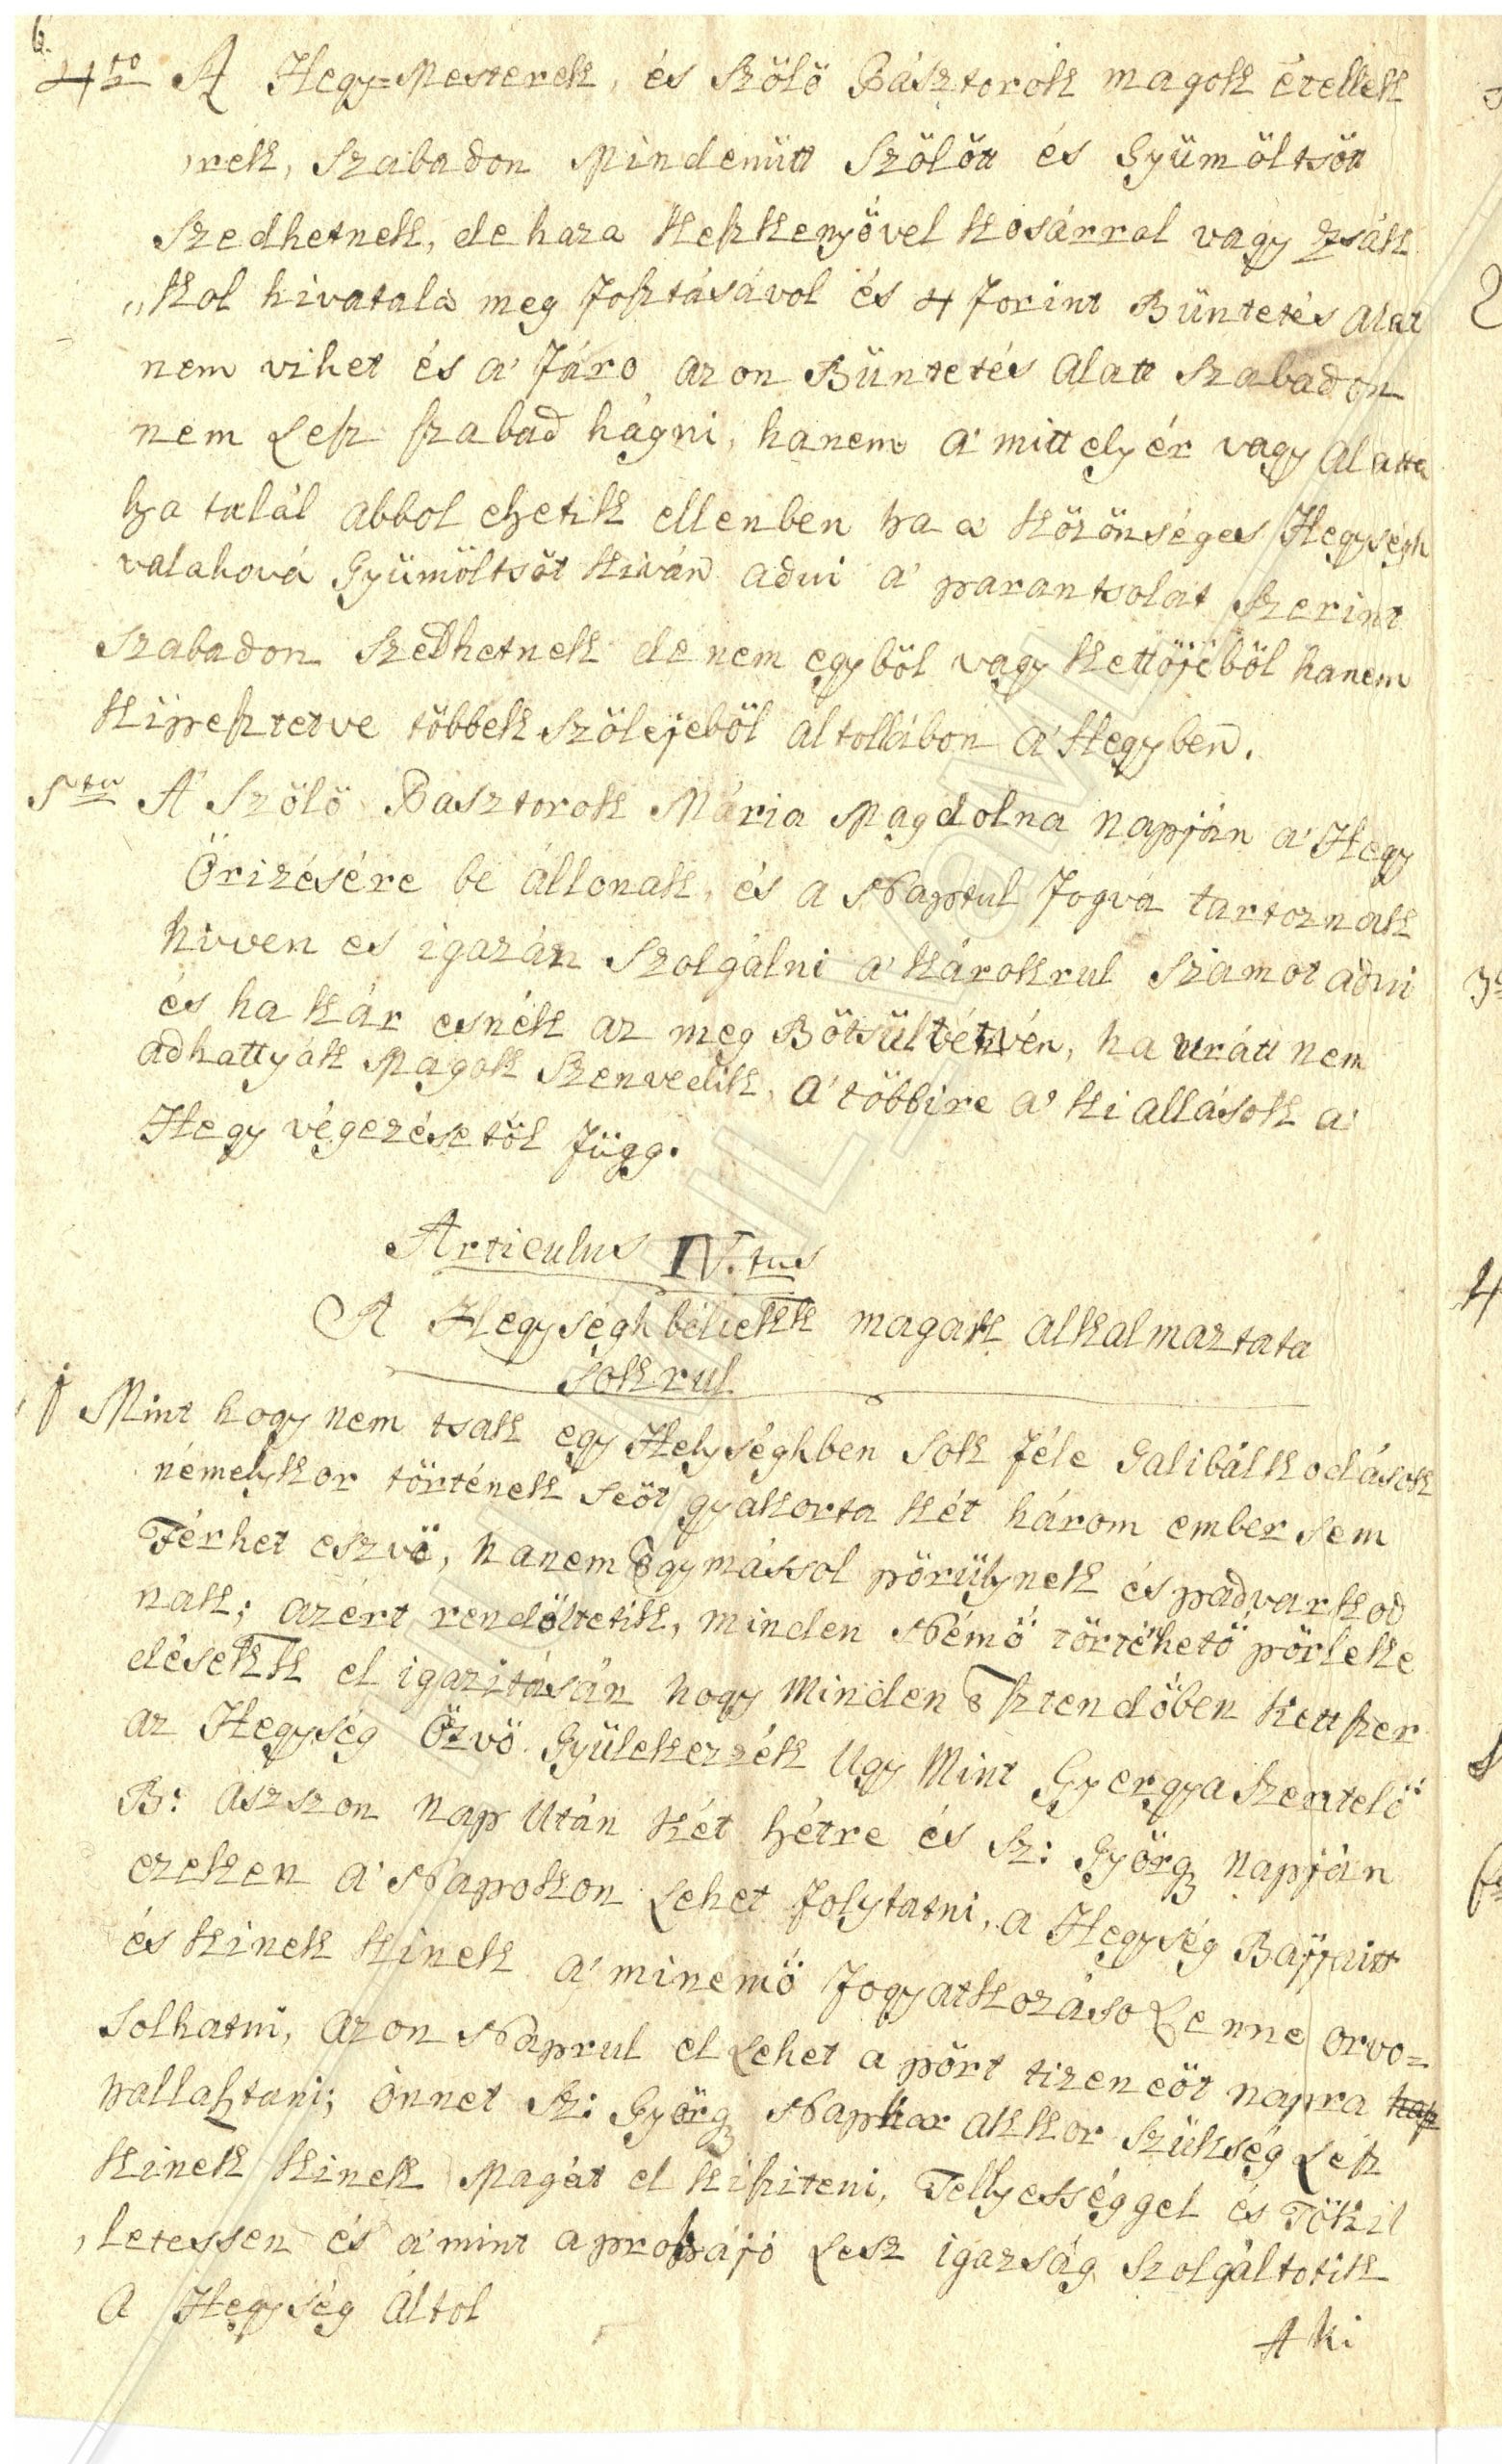 6.
4to A Hegy=Mesterek, és Szölö Pásztorok magok ételek
rek, Szabadon Mindenütt Szölöt és Gyümöltsöt
Szedhetnek, de haza Keszkenyövel Kosárral vagy Zsák
„Kol hivatala meg Fosztásávol és 4 Forint Büntetés alat
nem vihet és a' Fáro azon Büntetés alatt Szabadon
nem Lesz szabad hágni, hanem a' mitt elyér vagy alatta
ha talál abbol ehetik ellenben ha a Közönséges Hegységh
valahová Gyümöltsöt Kiván adni a' parantsolat Szerint
Szabadon Szedhetnek de nem egyböl vagy Kettöjéböl hanem
Kipesztetve többek Szölejeböl altollábon a' Hegyben.
5tu A' Szölö Pasztorok Mária Magdolna Napján a' Hegy
Örizésére be állonak, és a Naptul Fogva tartoznak
hiven es igazán Szolgálni a' Károkrul Szamot adni
és ha Kár esnék az meg Bötsültétvén, ha urátt nem
adhattyák Magok Szenvedik, a' többire a' Ki allások a'
Hegy végezésetöl Függ.
Articulus IV.tus
A Hegységhbéliekk magak alkalmaztata
sokrul
1 Mint hogy nem tsak egy Helységhben Sok féle Galibálkodások
némelykor történek Seöt gyakorta Két három ember sem
Férhet eszvö, hanem Egymással pörülynek és padvarkod
nak; azért rendöltetik, minden Némö történhetö pörleke
désekk el igazitásán hogy Minden Esztendöben Kettszer
az Hegység Özvö Gyülekezzék Ugy Mint Gyergya Szentelö
B: Aszszon Nap Után Két hétre és Sz: Györg Napján
ezeken a' Napokon Lehet folytatni, a Hegység Bajjaitt
és Kinek Kinek a' minemö Fogyatkozáso Lenne orvo=
solhatni, azon Naprul el Lehet a pört tizeneöt napra
hallasztani; önnet Sz: Györg Napkor akkor Szükség Lesz
Kinek Kinek Magát el Késziteni, Tellyességgel és Tökil
„letessen és a' mint a probájó Lesz igazság Szolgáltotik
A Hegység Áltol
A ki